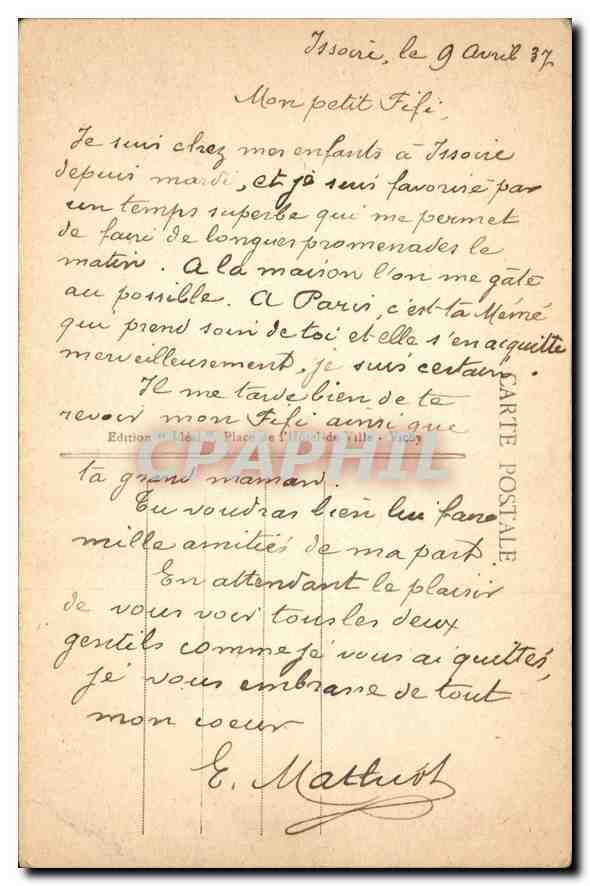 Issoire, le 9 Avril 37
Mon petit Fifi,
Je suis chez mes enfants à Issoire
depuis mardi, et je suis favorisé par
un temps superbe qui me permet
de faire de longues promenades le
matin. A la maison l'on me gâte
au possible. A Paris, c'est ta Mémé
qui prend soin de toi et elle s'en acquitte
merveilleusement, je suis certain.
Il me tarde bien de te
revoir mon Fifi ainsi que
Edition "Idéal" Place de l'Hôtel-de-Ville - Vichy
CPAPHIL
CARTE POSTALE
ta grand maman.
Tu voudras bien lui faire
mille amitiés de ma part.
En attendant le plaisir
de vous voir tous les deux
gentils comme je vous ai quittés,
je vous embrasse de tout
mon coeur
E.